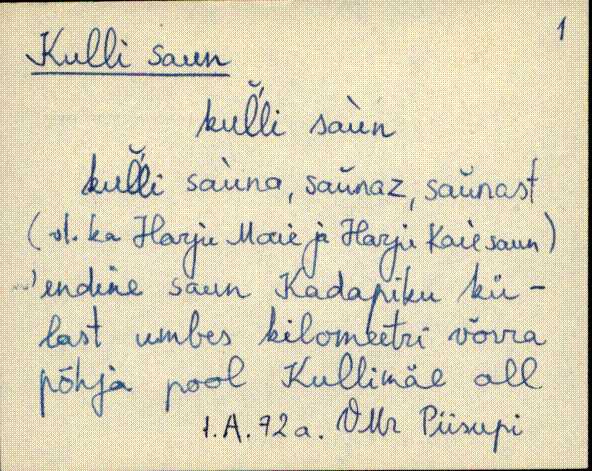 1
Kulli saun
kul̆̀li saùn
kul̆̀li saùna, saŭnaz, saŭnast
(vt. ka Harju Maie ja Harju Kaie saun)
'endine saun Kadapiku kü-
last umbes kilomeetri võrra
põhja pool Kullimäe all
1.A.72a. VMr Piisupi